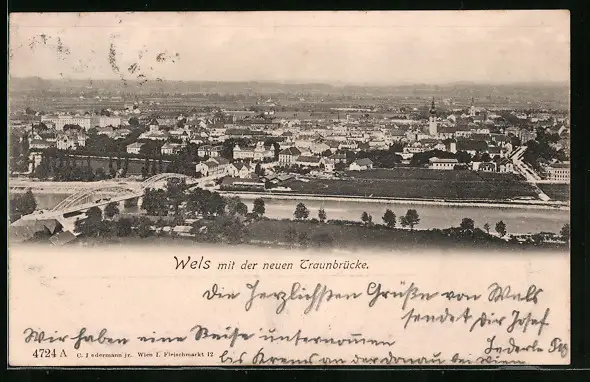 Wels mit der neuen Traunbrücke.
die Herzlichsten Grüße von Wels
sendet dir Josef
Wir haben eine Reise unternommen
bis Krems an der donau bei Wien
4724 A C. Ledermann jr. Wien I. Fleischmarkt 12